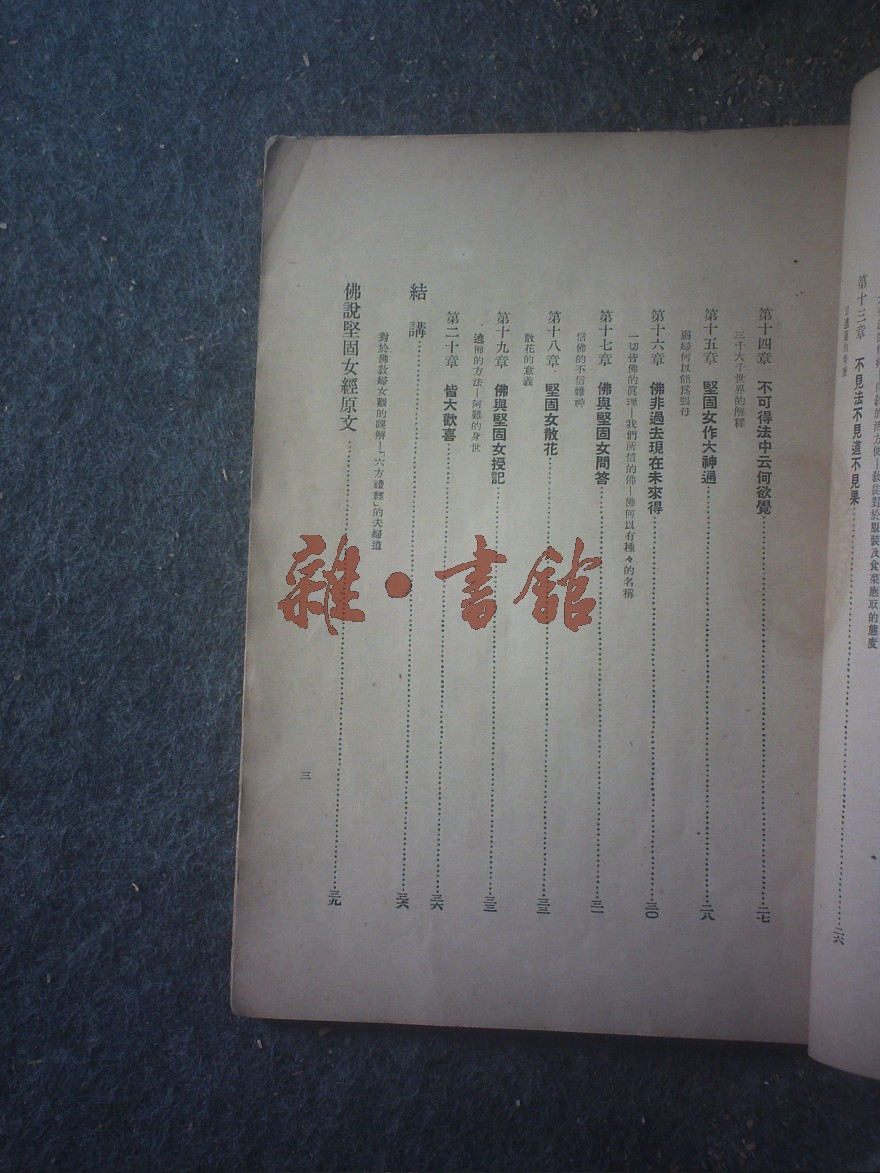 教徒對於服裝及食菜應取的態度
第十三章 不見法不見道不見果……二六
第十四章 不可得法中云何欲覺……二七
三千大千世界的解釋
第十五章 堅固女作大神通……二八
弱婦何以能為強母
第十六章 佛非過去現在未來得……三〇
一切皆佛的眞理—我們所信的佛—佛何以有種々的名稱
第十七章 佛與堅固女問答……三一
信佛的不信雜神
第十八章 堅固女散花……三二
散花的意義
第十九章 佛與堅固女授記……三三
遶佛的方法—阿難的身世
第二十章 皆大歡喜……三六
結 講……三六
對於佛敎婦女觀的誤解—「六方禮經」的夫婦道
佛說堅固女經原文……三九
三
雜·書館